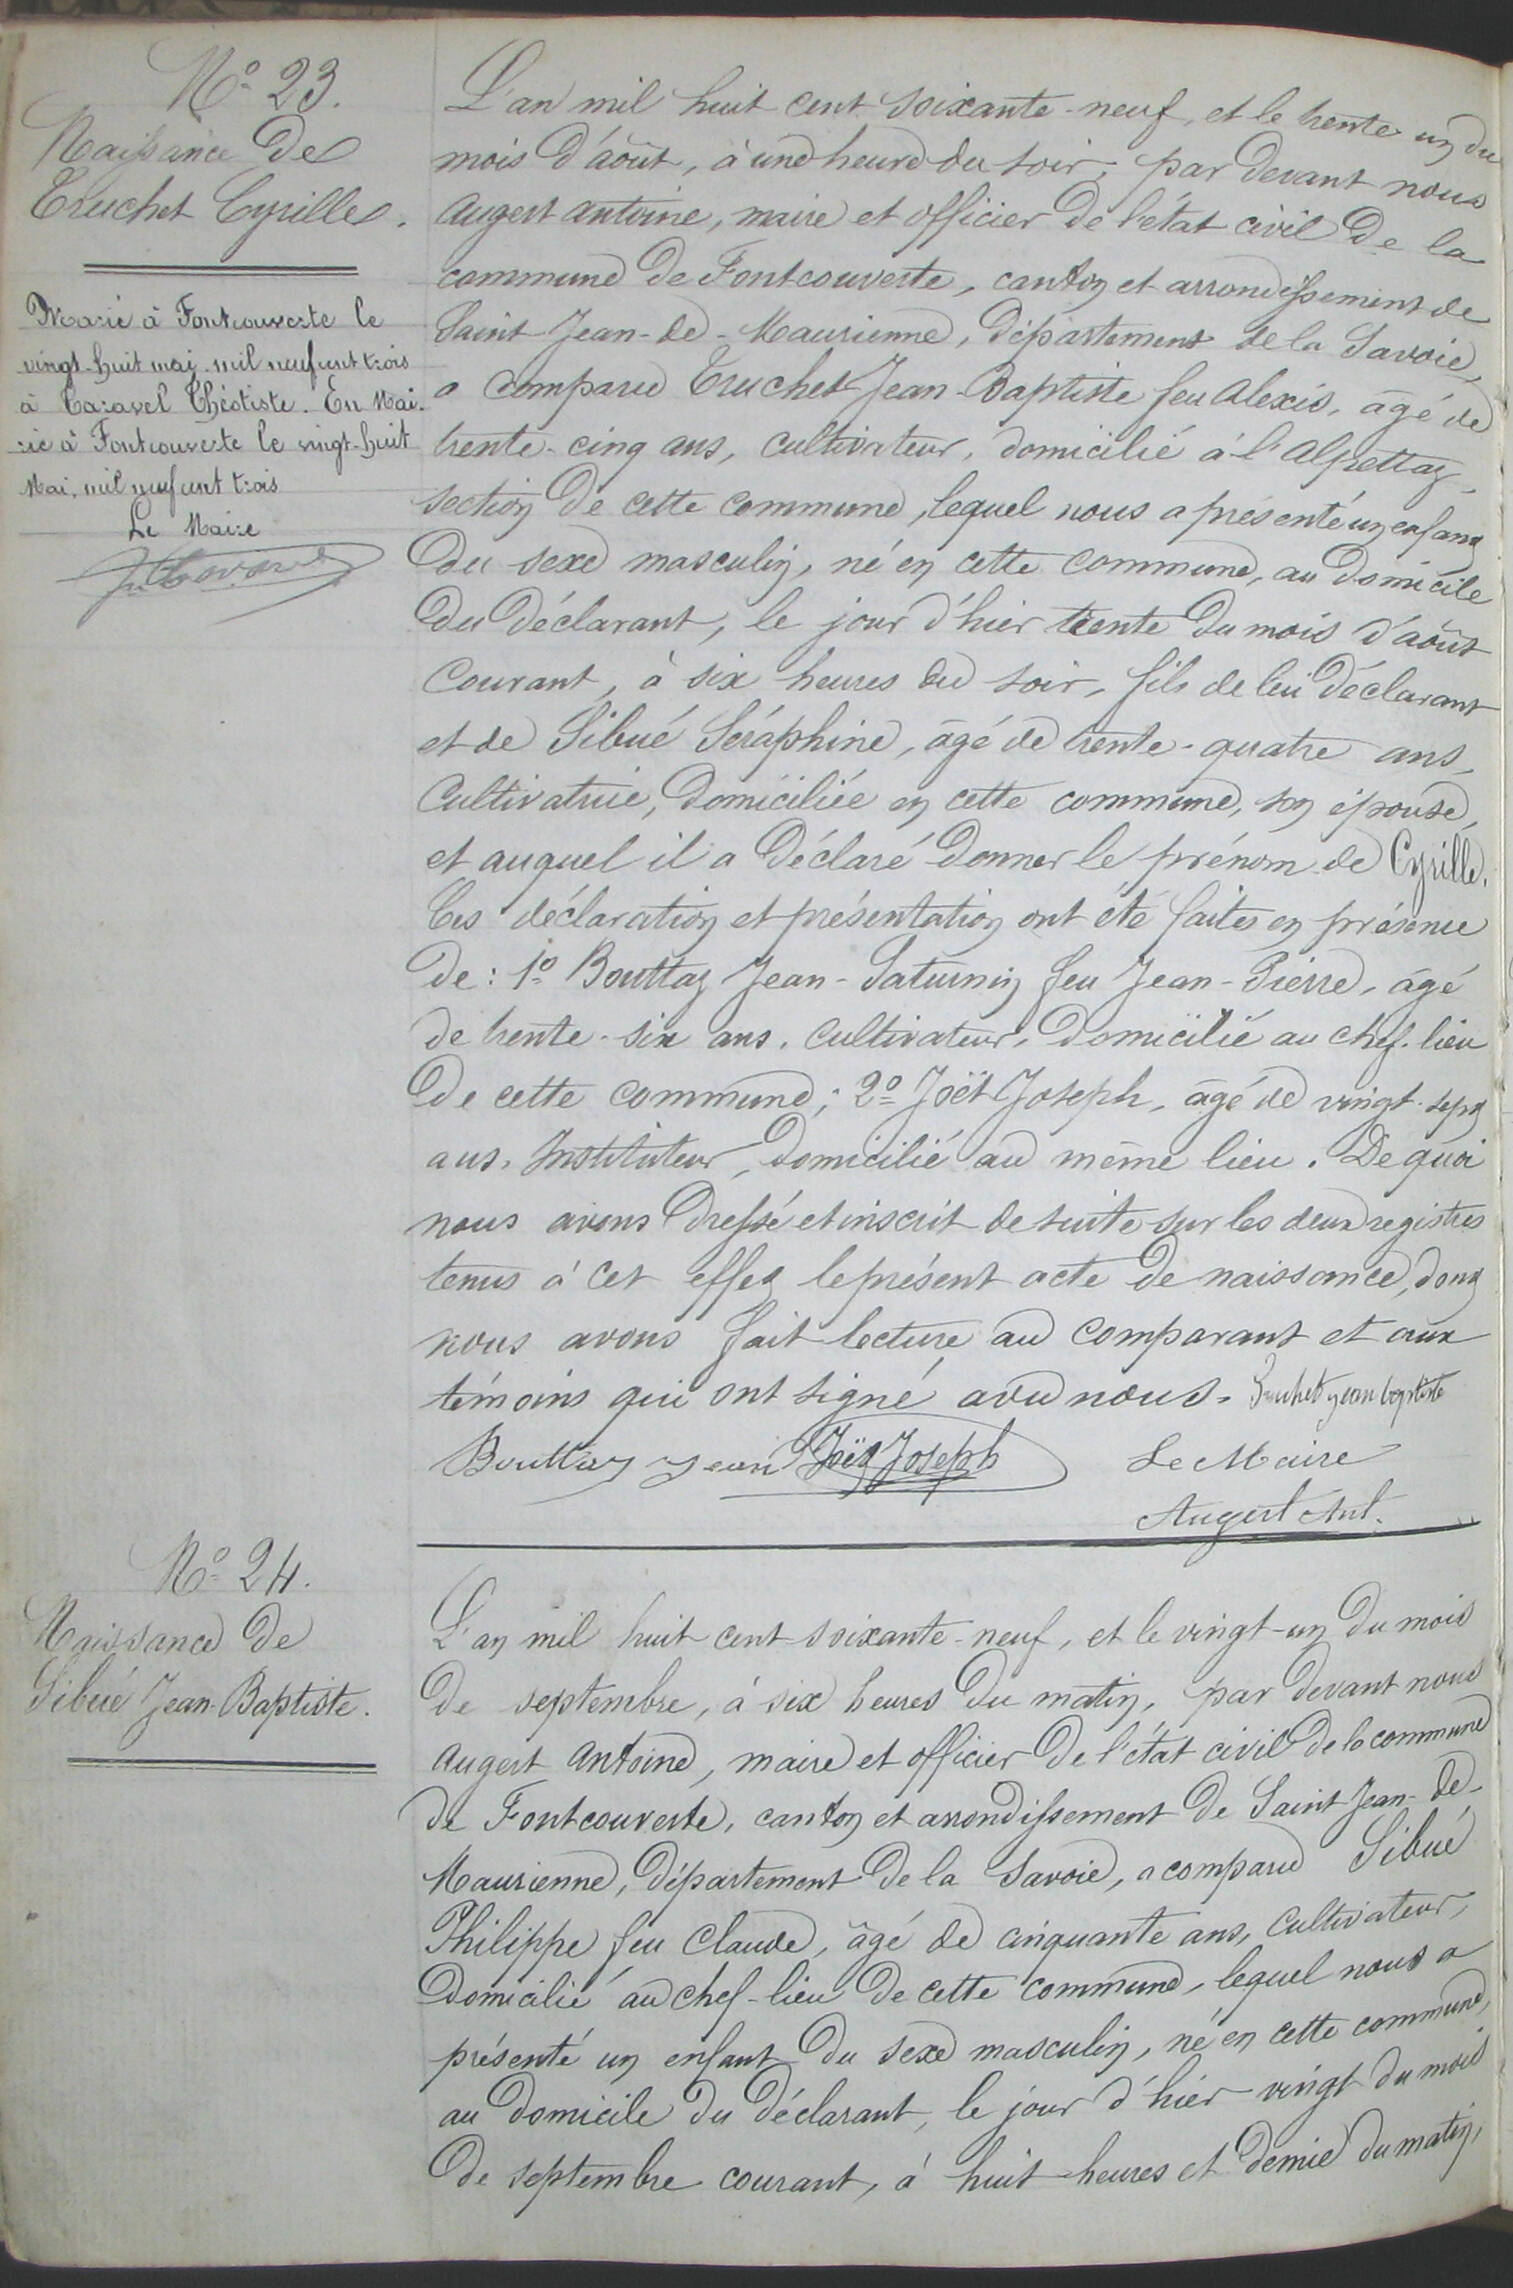 N° 23.
Naissance de
Truchet Cyrille.
Marié à Fontcouverte le
vingt-huit mai mil neuf cent trois
à Taravel Théotiste. En Mai-
rie à Fontcouverte le vingt-huit
Mai, mil neuf cent trois
Le Maire
L'an mil huit cent soixante-neuf, et le trente un du
mois d'août, à une heure du soir, par devant nous
Augert Antoine, maire et officier de l'état civil de la
commune de Fontcouverte, canton et arrondissement de
Saint Jean-de-Maurienne, département de la Savoie,
a comparu Truchet Jean-Baptiste feu Alexis, âgé de
trente-cinq ans, cultivateur, domicilié à l'Alpettaz,
section de cette commune, lequel nous a présenté un enfant
du sexe masculin, né en cette commune, au domicile
du déclarant, le jour d'hier trente du mois d'août
courant, à six heures du soir, fils de lui déclarant
et de Sibué Séraphine, âgé de trente-quatre ans,
cultivatrice, domiciliée en cette commune, son épouse,
et auquel il a déclaré donner le prénom de Cyrille.
Ces déclaration et présentation ont été faites en présence
de : 1° Bouttaz Jean-Saturnin feu Jean-Pierre, âgé
de trente-six ans, cultivateur, domicilié au chef-lieu
de cette commune ; 2° Joët Joseph, âgé de vingt-sept
ans, Instituteur, domicilié au même lieu. De quoi
nous avons dressé et inscrit de suite sur les deux registres
tenus à cet effet le présent acte de naissance, dont
nous avons fait lecture au comparant et aux
témoins qui ont signé avec nous. Truchet jean baptiste
Bouttaz Jean Joët Joseph Le Maire
Augert Ant.
N° 24.
Naissance de
Sibué Jean-Baptiste.
L'an mil huit cent soixante-neuf, et le vingt-un du mois
de septembre, à six heures du matin, par devant nous
Augert Antoine, maire et officier de l'état civil de la commune
de Fontcouverte, canton et arrondissement de Saint Jean-de-
Maurienne, département de la Savoie, a comparu Sibué
Philippe feu Claude, âgé de cinquante ans, cultivateur,
domicilié au chef-lieu de cette commune, lequel nous a
présenté un enfant du sexe masculin, né en cette commune,
au domicile du déclarant, le jour d'hier vingt du mois
de septembre courant, à huit heures et demie du matin,